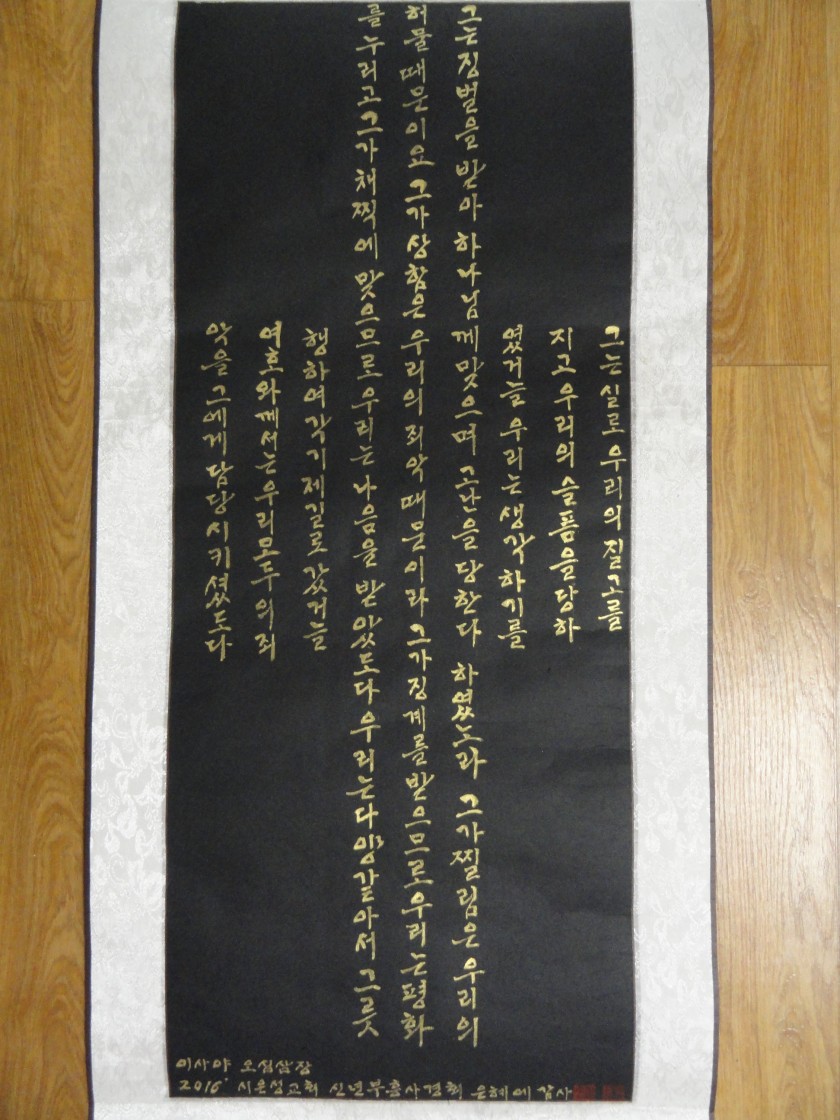 그는 실로 우리의 질고를
지고 우리의 슬픔을 당하
였거늘 우리는 생각하기를
그는 징벌을 받아 하나님께 맞으며 고난을 당한다 하였노라 그가 찔림은 우리의
허물 때문이요 그가 상함은 우리의 죄악 때문이라 그가 징계를 받으므로 우리는 평화
를 누리고 그가 채찍에 맞으므로 우리는 나음을 받았도다 우리는 다 양 같아서 그릇
행하여 각기 제 길로 갔거늘
여호와께서는 우리 모두의 죄
악을 그에게 담당시키셨도다
이사야 오십삼장
2016' 시은성교회 신년부흥사경회 은혜에 감사